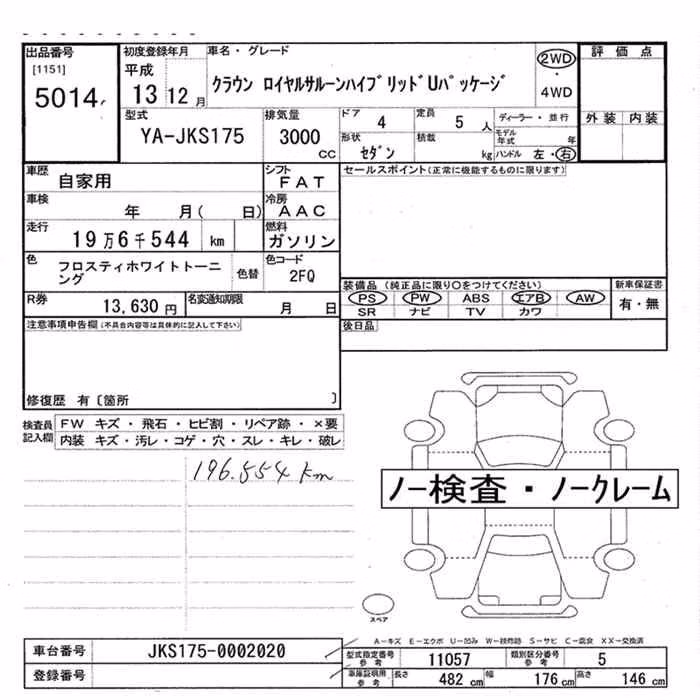 出品番号 初度登録年月 車名・グレード 評価点
[1151] 平成 2WD
5014 13 12月 クラウン ロイヤルサルーンハイブリッドUパッケージ ・
4WD
型式 排気量 ドア 4 定員 5人 ディーラー・並行 外装 内装
YA-JKS175 3000cc 形状 セダン 積載 kg モデル年式 年
ハンドル 左・右
車歴 自家用 シフト FAT セールスポイント(正常に機能するものに限ります)
車検 年 月( 日) 冷房 AAC
走行 19万6千544 km 燃料 ガソリン
色 フロスティホワイトトーニング 色替 色コード 2FQ
装備品(純正品に限り○をつけてください) 新車保証書
R券 13,630円 名変通知期限 月 日 PS PW ABS エアB AW 有・無
SR ナビ TV カワ
注意事項申告欄(不具合内容等は具体的に記入して下さい) 後日品
修復歴 有〔箇所 〕
検査員記入欄 FW キズ・飛石・ヒビ割・リペア跡・×要
内装 キズ・汚レ・コゲ・穴・スレ・キレ・破レ
196.554km
ノー検査・ノークレーム
スペア
A-キズ E-エクボ U-凹み W-板修跡 S-サビ C-腐食 XX-交換済
車台番号 JKS175-0002020 型式指定番号参考 11057 類別区分番号参考 5
登録番号 車庫証明用参考 長さ 482cm 幅 176cm 高さ 146cm